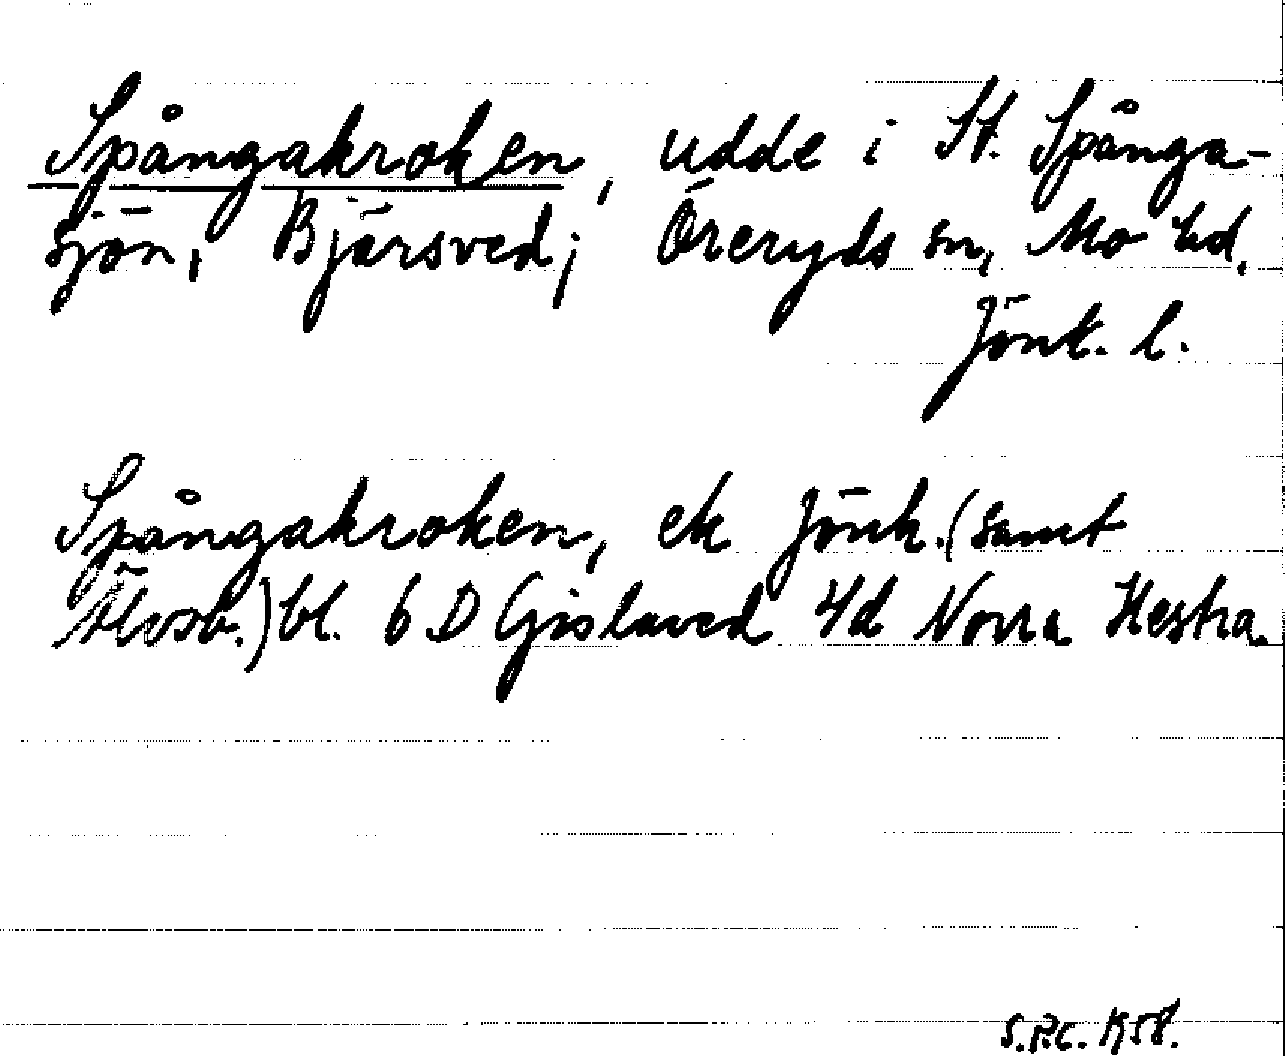 Spångakroken, udde i St. Spånga-
sjön, Bjärsved; Öreryds sn, Mo hd,
Jönk. l.
Spångakroken, ek Jönk. (samt
Älvsb.) bl. 6 D Gislaved 4d Norra Hestra.
S.P.C. 1958.